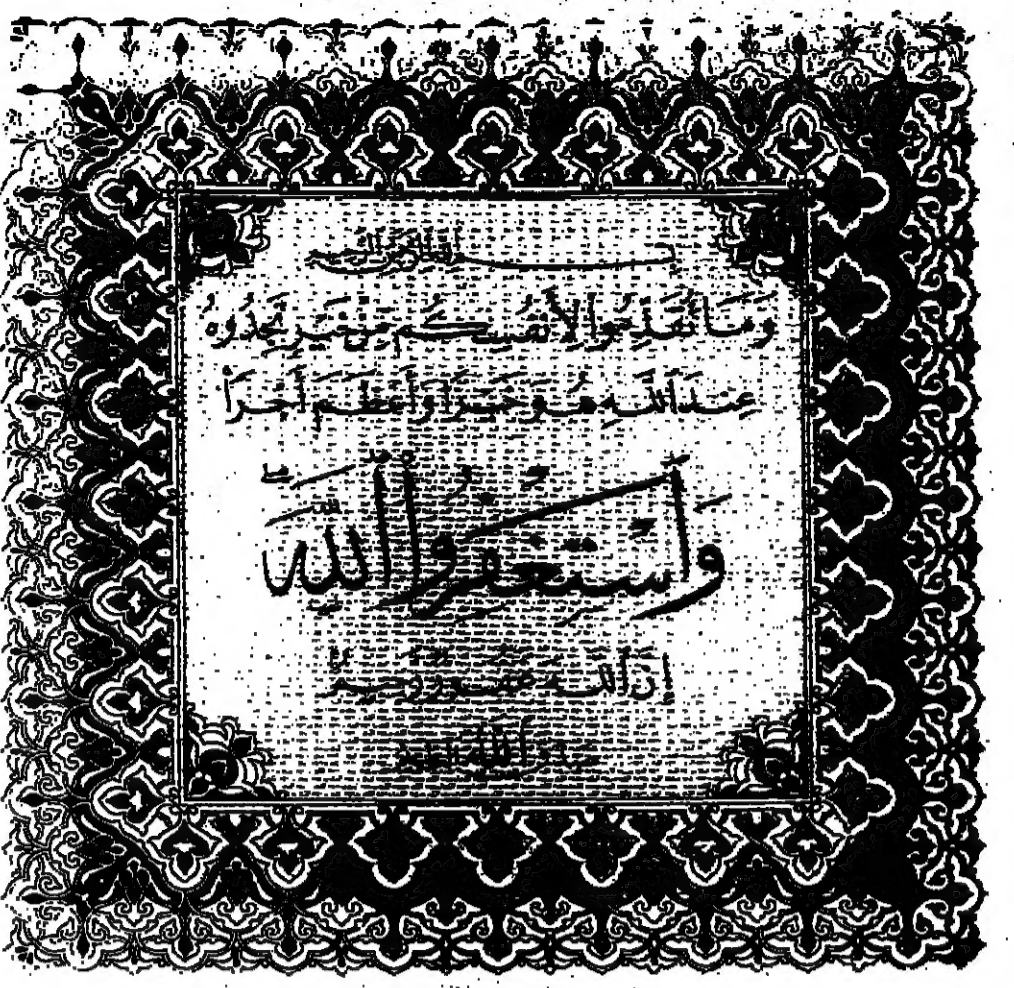 بسم الله الرحمن الرحيم
وَمَا تُقَدِّمُوا لِأَنفُسِكُم مِّنْ خَيْرٍ تَجِدُوهُ
عِندَ ٱللَّهِ هُوَ خَيْرًا وَأَعْظَمَ أَجْرًا
وَٱسْتَغْفِرُوا ٱللَّهَ
إِنَّ ٱللَّهَ غَفُورٌ رَّحِيمٌ
صدق الله العظيم